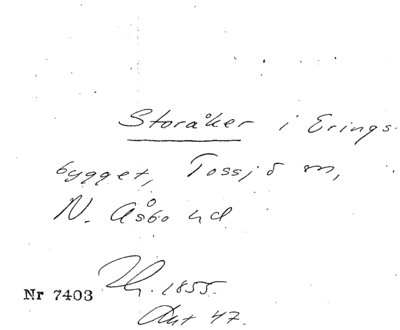 Storåker i Erings-
bygget, Tossjö m,
N. Åsbo hd
Nr 7403
1855.
Akt 47.